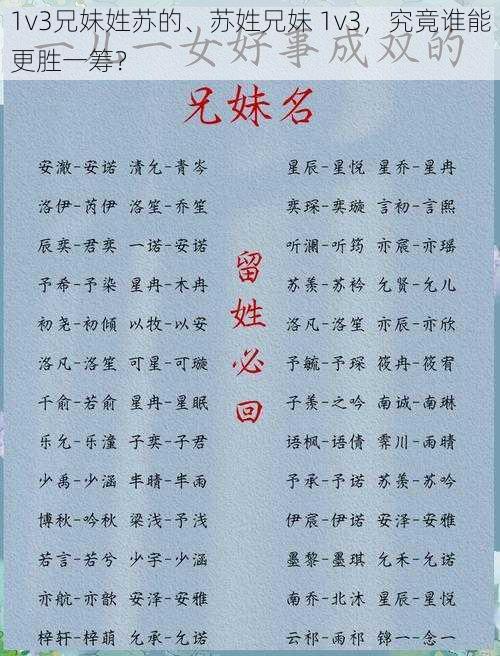 1v3兄妹姓苏的、苏姓兄妹 1v3，究竟谁能
更胜一筹？
一儿一女好事成双的
兄妹名
留姓必回
安澈-安诺 清允-青岑
洛伊-芮伊 洛笙-乔笙
辰奕-君奕 一诺-安诺
予希-予染 星冉-木冉
初尧-初倾 以牧-以安
洛凡-洛笙 可星-可璇
千俞-若俞 星冉-星眠
乐允-乐潼 子奕-子君
少禹-少涵 半晴-半雨
博秋-吟秋 梁浅-予浅
若言-若兮 少宇-少涵
亦航-亦歆 安泽-安雅
梓轩-梓萌 允承-允诺
星辰-星悦 星乔-星冉
奕琛-奕璇 言初-言熙
听澜-听筠 亦宸-亦瑶
苏羡-苏衿 允贤-允儿
洛凡-洛笙 亦辰-亦欣
予毓-予琛 筱冉-筱宥
子羡-之吟 南诚-南琳
语枫-语倩 霁川-雨晴
予承-予诺 苏羡-苏吟
伊宸-伊诺 安泽-安雅
墨黎-墨琪 允禾-允诺
南乔-北沐 星辰-星悦
云祁-雨祁 锦一-念一